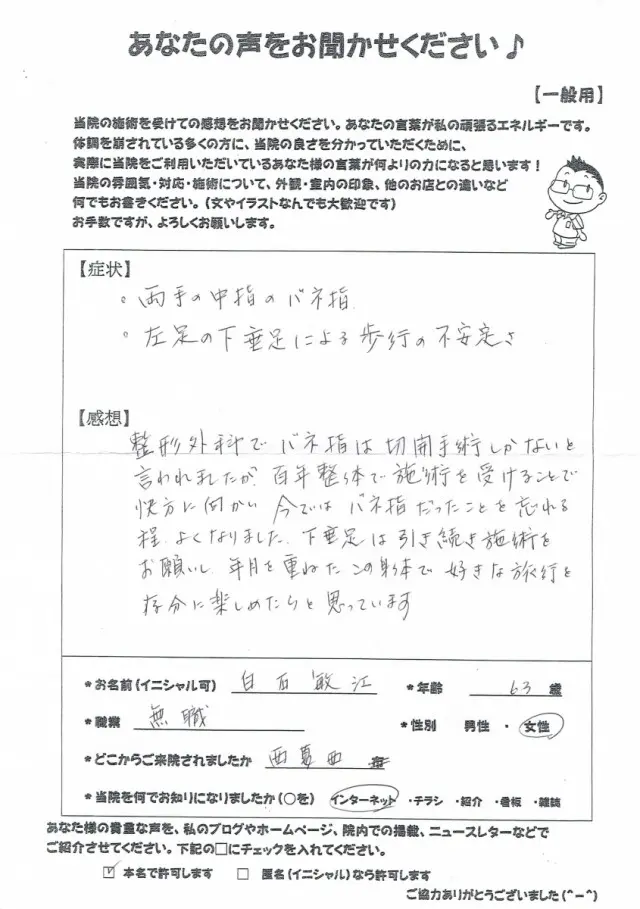 あなたの声をお聞かせください♪
【一般用】
当院の施術を受けての感想をお聞かせください。あなたの言葉が私の頑張るエネルギーです。
体調を崩されている多くの方に、当院の良さを分かっていただくために、
実際に当院をご利用いただいているあなた様の言葉が何よりの力になると思います!
当院の雰囲気・対応・施術について、外観・室内の印象、他のお店との違いなど
何でもお書きください。(文やイラストなんでも大歓迎です)
お手数ですが、よろしくお願いします。
【症状】
・両手の中指のバネ指
・左足の下垂足による歩行の不安定さ
【感想】
整形外科でバネ指は切開手術しかないと
言われましたが、百年整体で施術を受けることで
快方に向かい 今ではバネ指だったことを忘れる
程、よくなりました。下垂足は引き続き施術を
お願いし、年月を重ねたこの身体で好きな旅行を
存分に楽しめたらと思っています
*お名前(イニシャル可) 白石敏江 *年齢 63 歳
*職業 無職 *性別 男性 ・ 女性
*どこからご来院されましたか
*当院を何でお知りになりましたか(○を) インターネット ・チラシ ・紹介 ・看板 ・雑誌
あなた様の貴重な声を、私のブログやホームページ、院内での掲載、ニュースレターなどで
ご紹介させてください。下記の□にチェックを入れてください。
☑ 本名で許可します □ 匿名(イニシャル)なら許可します
ご協力ありがとうございました(^-^)